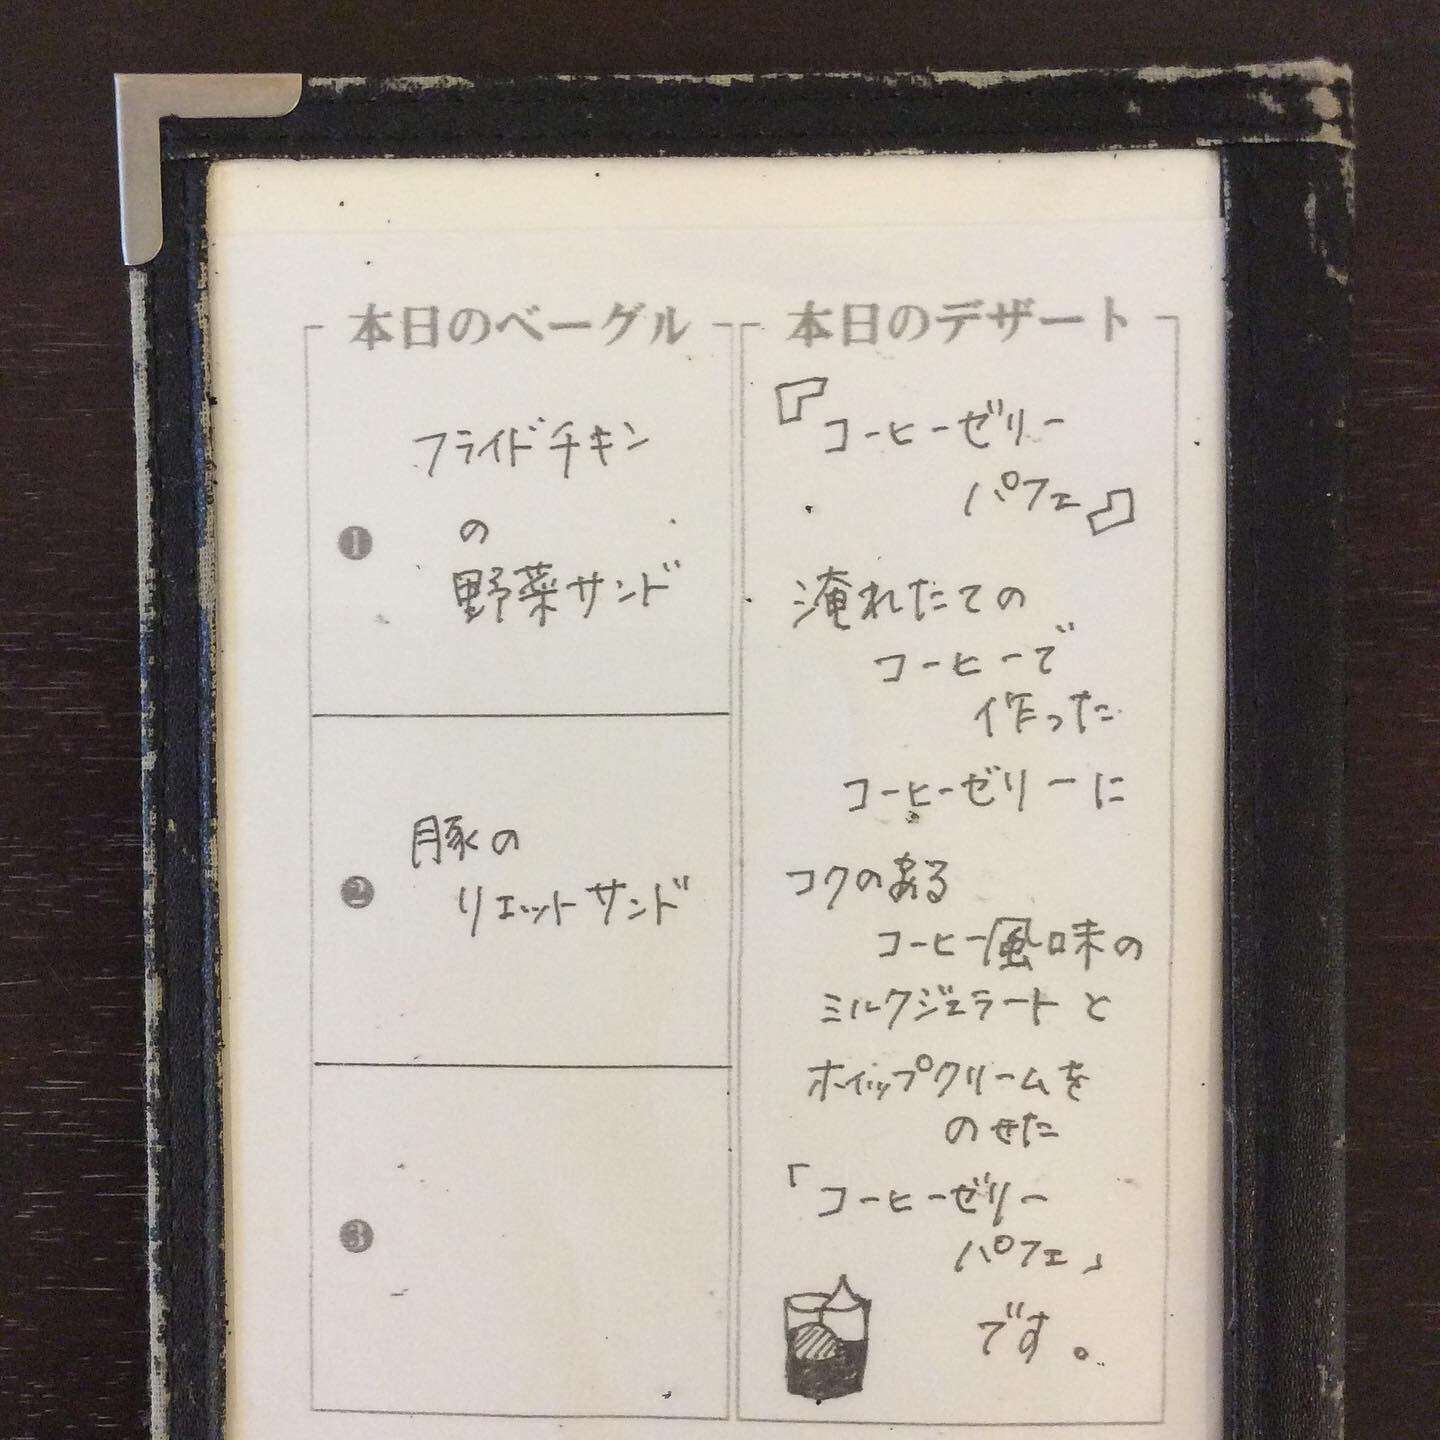 本日のベーグル
❶
フライドチキン
の
野菜サンド
❷
豚の
リエットサンド
❸
本日のデザート
『コーヒーゼリー
パフェ』
淹れたての
コーヒーで
作った
コーヒーゼリーに
コクのある
コーヒー風味の
ミルクジェラートと
ホイップクリームを
のせた
「コーヒーゼリー
パフェ」
です。